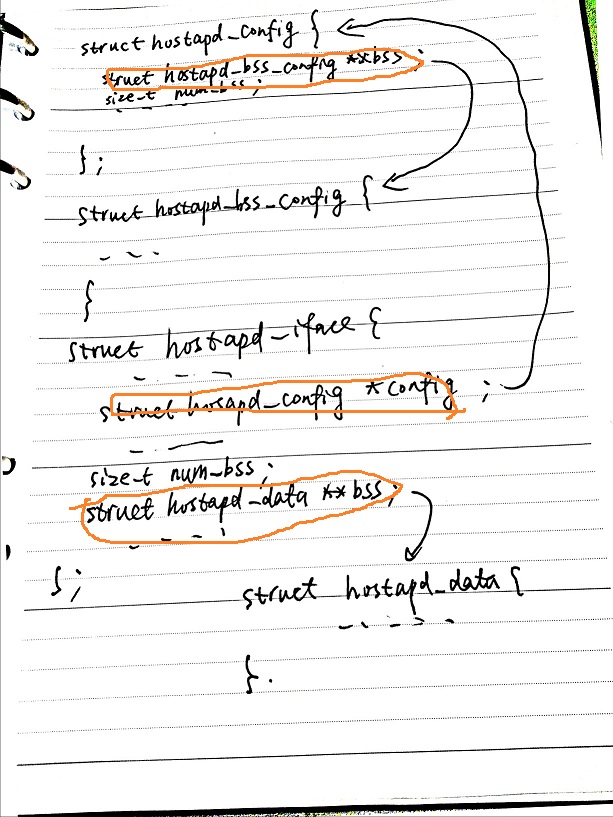 struct hostapd_config {
struct hostapd_bss_config **bss ;
size_t num_bss ;
- - - -
};
struct hostapd_bss_config {
- - -
}
struct hostapd_iface {
- - - -
struct hosapd_config *config ;
- - —
size_t num_bss ;
struct hostapd_data **bss ;
- - - -
};
struct hostapd_data {
- - - - -
}.